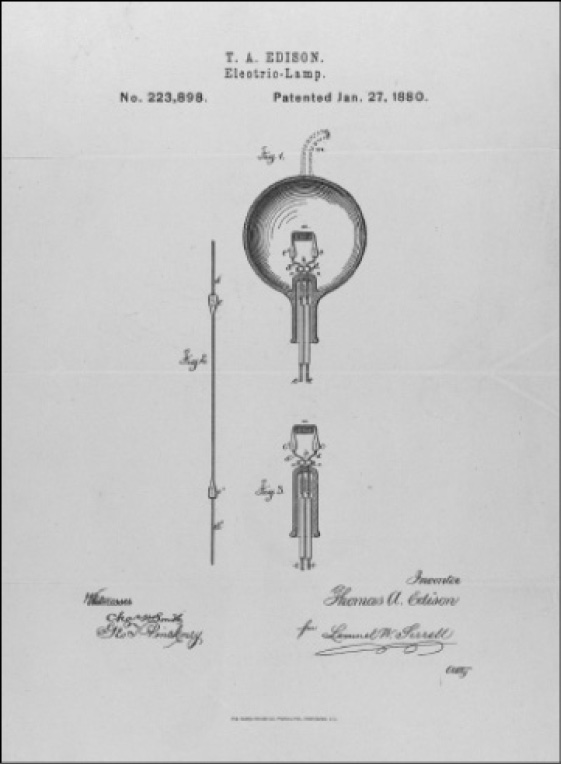 T. A. EDISON.
Electric-Lamp.
No. 223,898.
Patented Jan. 27, 1880.
Fig. 1.
Fig. 2.
Fig. 3.
Witnesses
Chas. H. Smith
Geo. T. Pinckney
Inventor
Thomas A. Edison
for Lemuel W. Serrell
atty